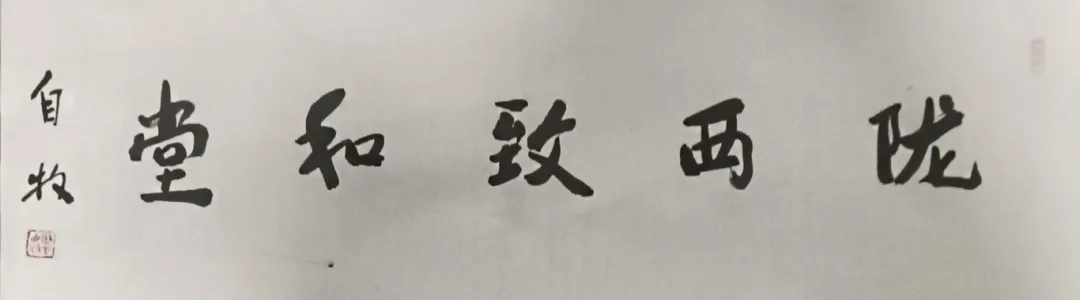 陇西致和堂
自牧